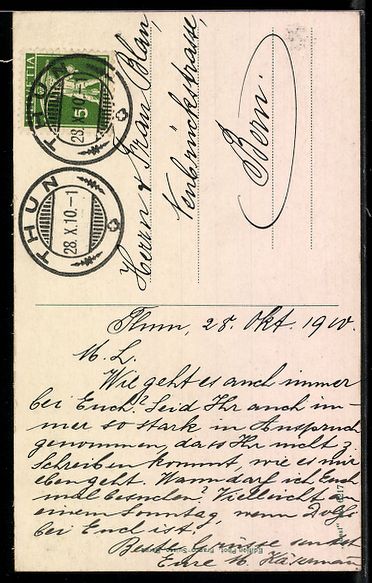 HELVETIA
5
THUN
28.X.10.-1
THUN
28.X.10.-1
Herrn & Frau Blau,
Neubrückstrasse,
Bern.
Thun, 28. Okt. 1910.
M. L.
Wie geht es auch immer
bei Euch? Seid Ihr auch im-
mer so stark in Anspruch
genommen, dass Ihr nicht z.
schreiben kommt, wie es mir
eben geht. Wann darf ich Euch
mal besuchen? Vielleicht an
einem Sonntag, wenn
bei Euch ist.
Beste Grüsse sendet
Eure M.